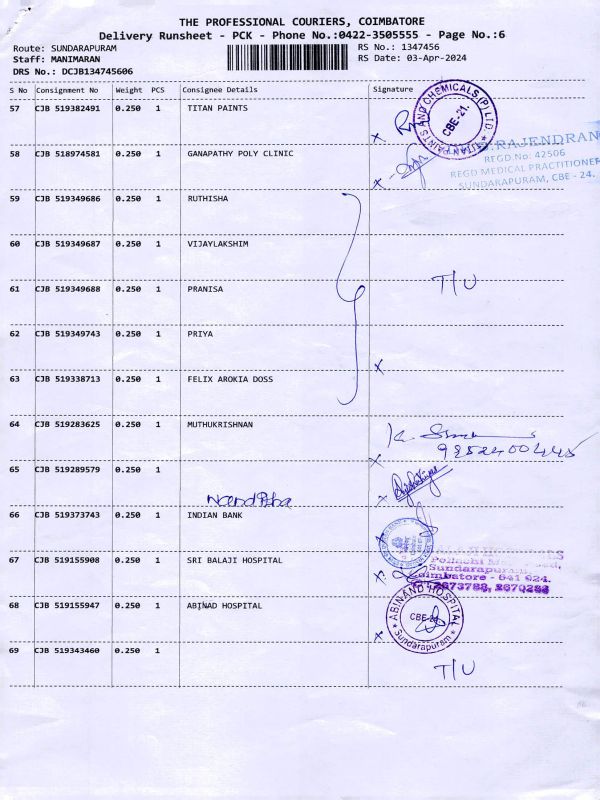 THE PROFESSIONAL COURIERS, COIMBATORE
Delivery Runsheet - PCK - Phone No.:0422-3505555 - Page No.:6
Route: SUNDARAPURAM RS No.: 1347456
Staff: MANIMARAN RS Date: 03-Apr-2024
DRS No.: DCJB134745606
S No Consignment No Weight PCS Consignee Details Signature
57 CJB 519382491 0.250 1 TITAN PAINTS
TITAN PAINTS AND CHEMICALS (P) LTD.
CBE-21.
58 CJB 518974581 0.250 1 GANAPATHY POLY CLINIC
RAJENDRAN
REGD.No: 42506
REGD MEDICAL PRACTITIONER
SUNDARAPURAM, CBE - 24.
59 CJB 519349686 0.250 1 RUTHISHA
60 CJB 519349687 0.250 1 VIJAYLAKSHIM
61 CJB 519349688 0.250 1 PRANISA
T/U
62 CJB 519349743 0.250 1 PRIYA
63 CJB 519338713 0.250 1 FELIX AROKIA DOSS
64 CJB 519283625 0.250 1 MUTHUKRISHNAN
65 CJB 519289579 0.250 1
66 CJB 519373743 0.250 1 INDIAN BANK
67 CJB 519155908 0.250 1 SRI BALAJI HOSPITAL
Pollachi
Sundarapuram,
Coimbatore - 641 024.
2673788, 2670286
68 CJB 519155947 0.250 1 ABINAD HOSPITAL
ABINAND HOSPITAL
Sundarapuram
69 CJB 519343460 0.250 1
T/U